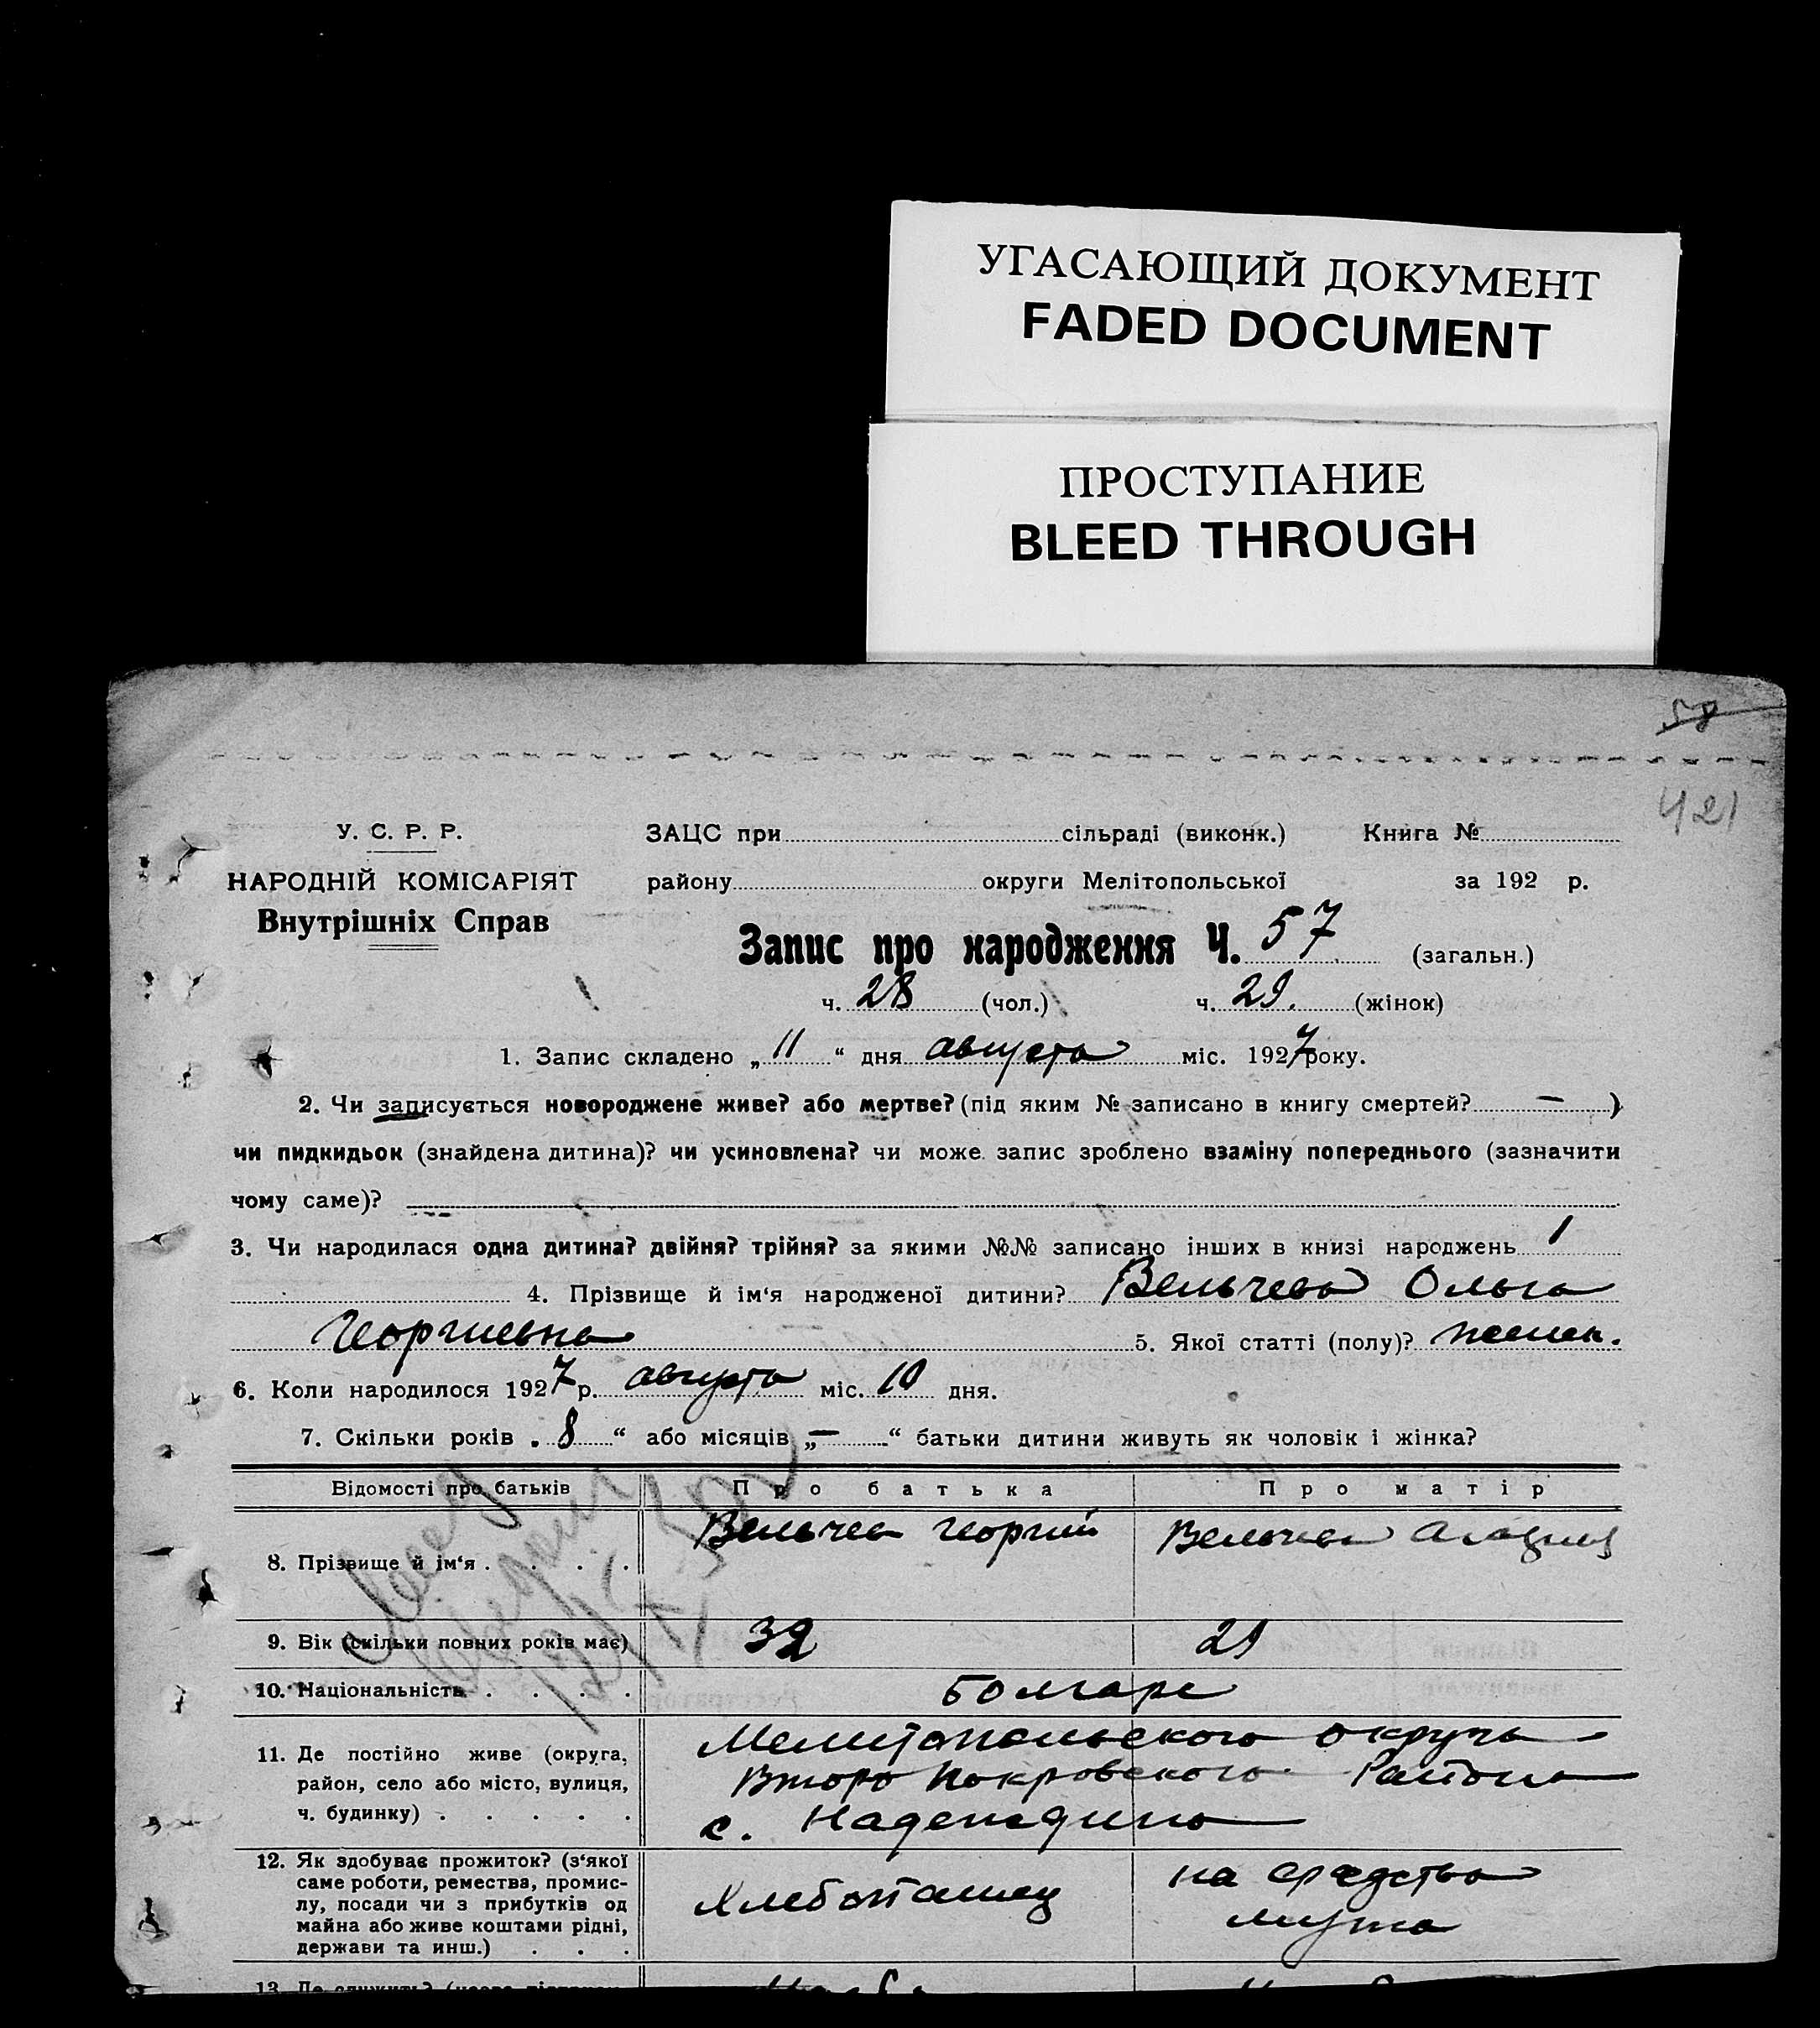 УГАСАЮЩИЙ ДОКУМЕНТ
FADED DOCUMENT
ПРОСТУПАНИЕ
BLEED THROUGH
58
421
У. С. Р. Р.
НАРОДНІЙ КОМІСАРІЯТ
Внутрішніх Справ
ЗАЦС при сільраді (виконк.) Книга №
району округи Мелітопольської за 192 р.
Запис про народження Ч. 57 (загальн.)
ч. 28 (чол.) ч. 29. (жінок)
1. Запис складено „ 11 “ дня августа міс. 1927 року.
2. Чи записується новороджене живе? або мертве? (під яким № записано в книгу смертей? — )
чи пидкидьок (знайдена дитина)? чи усиновлена? чи може запис зроблено взаміну попереднього (зазначити
чому саме)?
3. Чи народилася одна дитина? двійня? трійня? за якими №№ записано інших в книзі народжень 1
4. Прізвище й ім‘я народженої дитини? Вельчева Ольга
Георгиевна 5. Якої статті (полу)? женск.
6. Коли народилося 1927 р. августа міс. 10 дня.
7. Скільки років „ 8 “ або місяців „ — “ батьки дитини живуть як чоловік і жінка?
Відомості про батьків Про батька Про матір
8. Прізвище й ім‘я . . . . Вельчев Георгий Вельчева
9. Вік (скільки повних років має) 32 29
10. Національність . . . . Болгаре
11. Де постійно живе (округа,
район, село або місто, вулиця,
ч. будинку) . . . . .
Мелитопольского округа
Второ Покровского Района
с. Надеждино
12. Як здобуває прожиток? (з‘якої
саме роботи, ремества, промис-
лу, посади чи з прибутків од
майна або живе коштами рідні,
держави та инш.) . . .
Хлебопашец
на средства
мужа